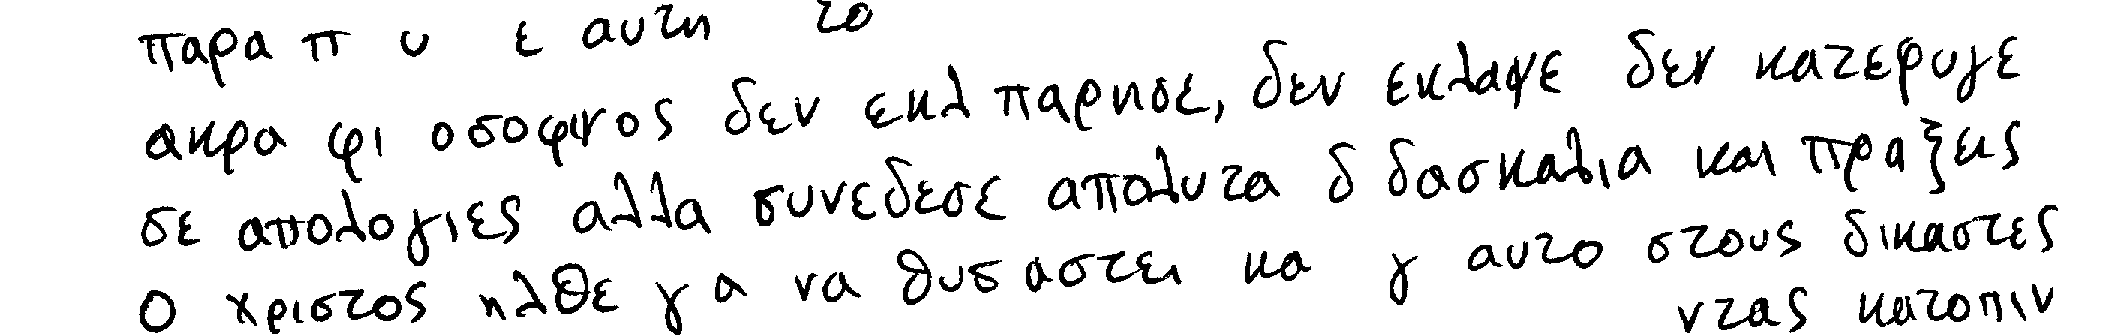 παρα π υ ε αυτη το
ακρα φι οσοφικος δεν εκλ παρησε, δεν εκλαψε δεν κατεφυγε
σε απολογιες αλλα συνεδεσε απολυτα δ δασκαλια και πραξεις
Ο χριστος ηλθε γ α να θυσιαστει κα γ αυτο στους δικαστες
ντας κατοπιν